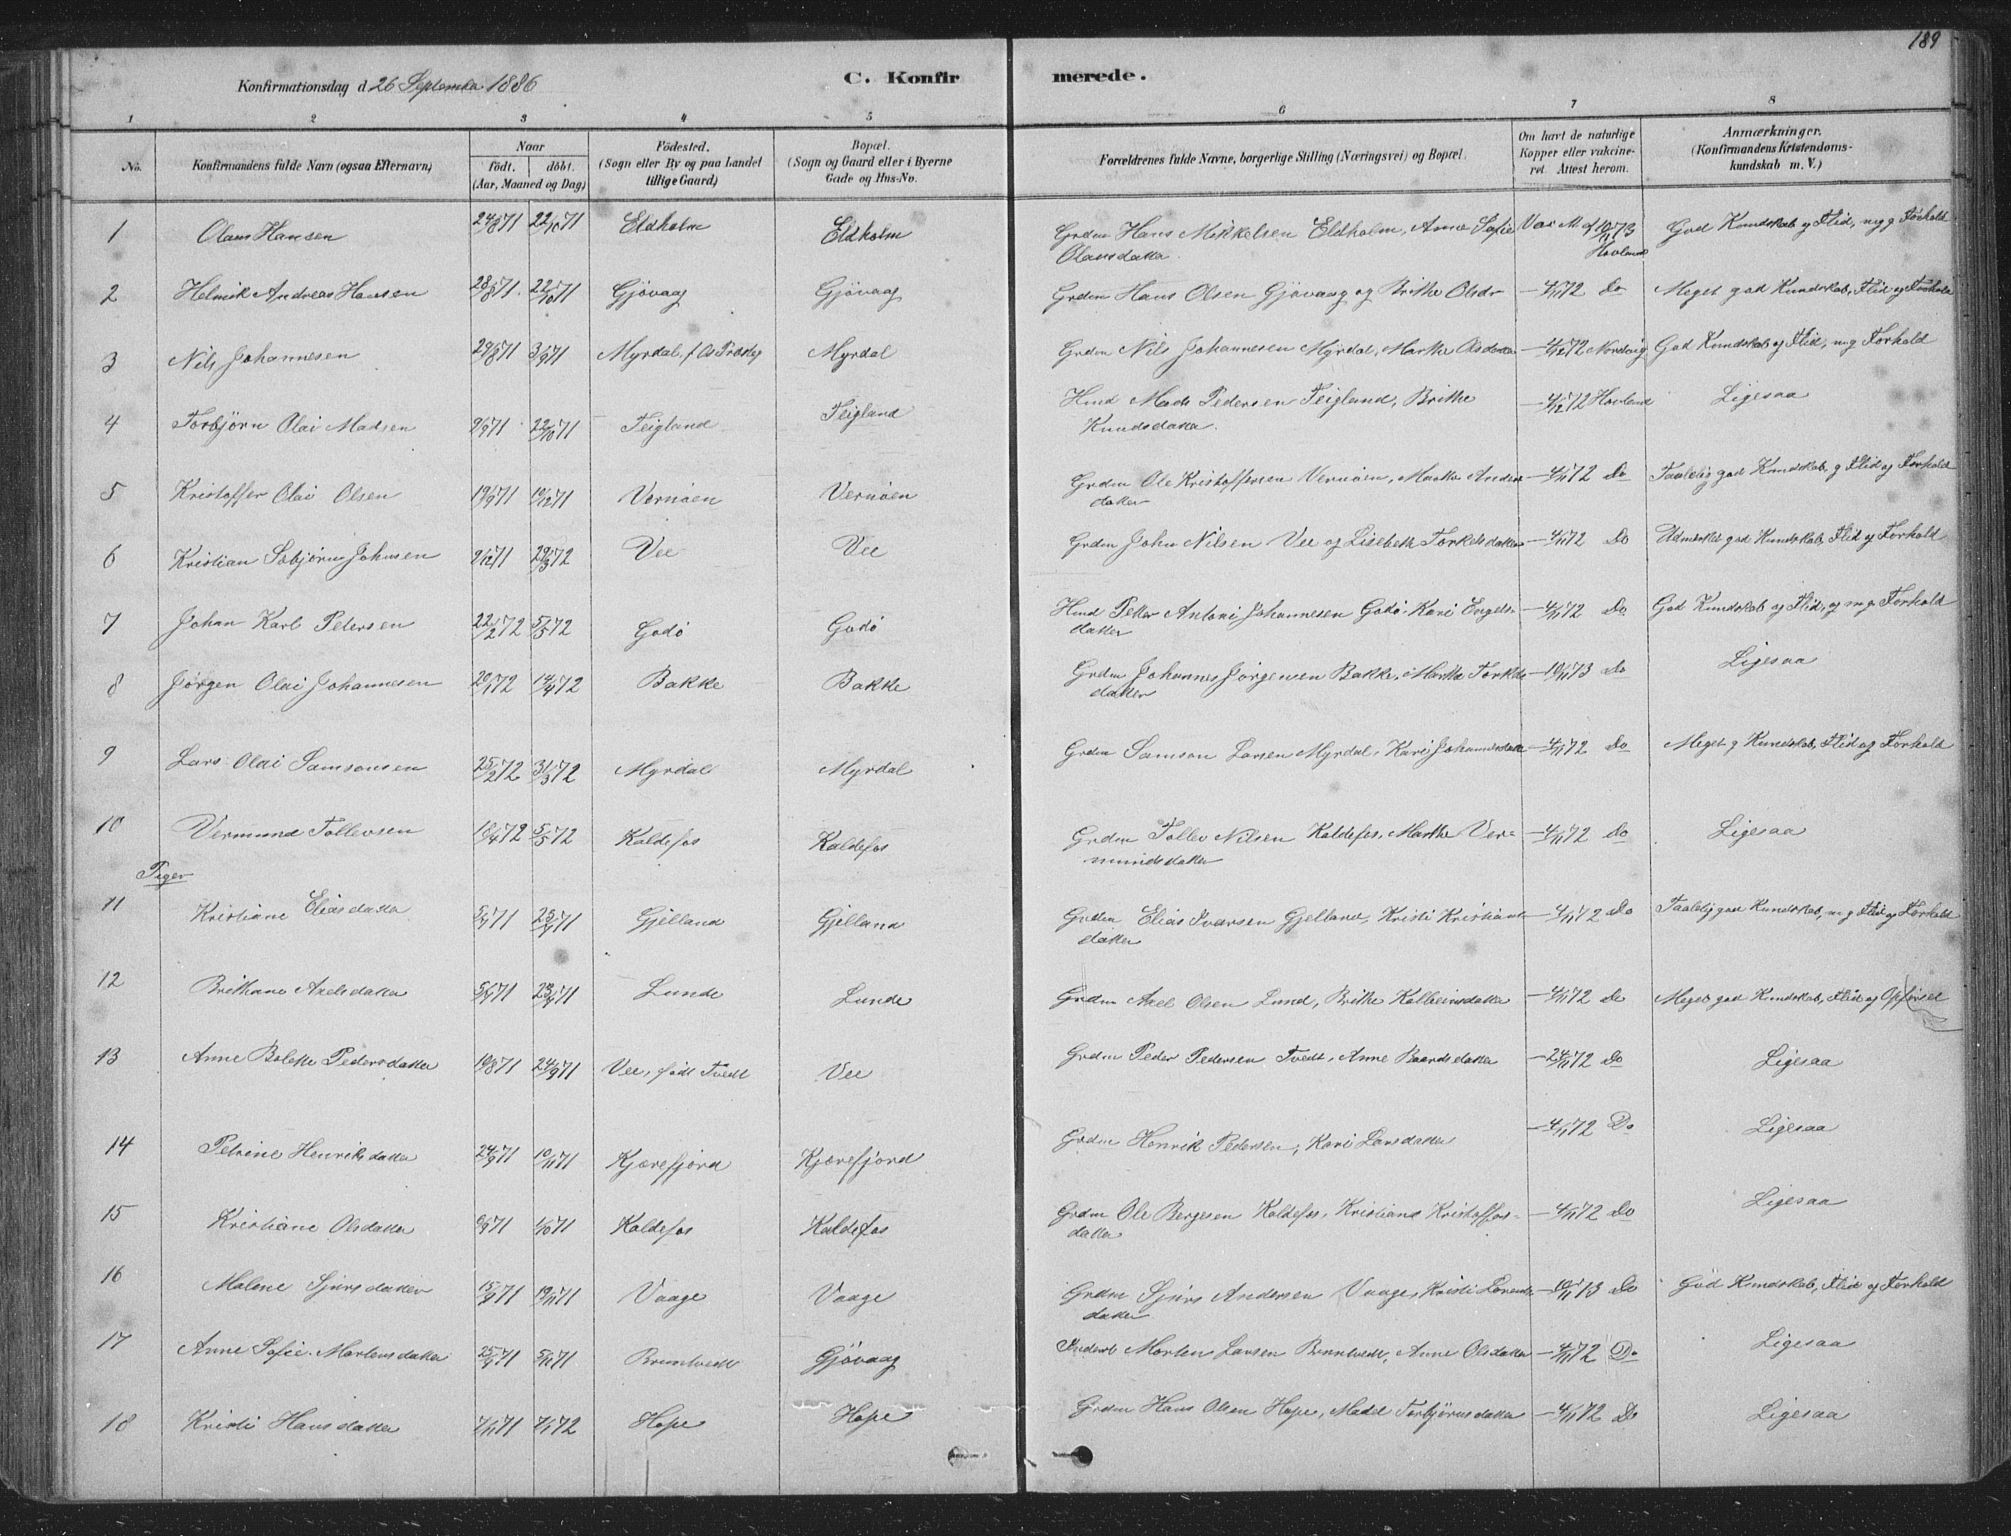 189
Konfirmationsdag d. 26 September 1886
C. Konfirmerede.
1 2 3 4 5 6 7 8
No. Konfirmandens fulde Navn (ogsaa Efternavn) Naar født. døbt. (Aar, Maaned og Dag) Fødested. (Sogn eller By og paa Landet tillige Gaard) Bopæl. (Sogn og Gaard eller i Byerne Gade og Hus-No. Forældrenes fulde Navne, borgerlige Stilling (Næringsvei) og Bopæl. Om havt de naturlige Kopper eller vakcineret. Attest herom. Anmærkninger. (Konfirmandens Kristendomskundskab m. V.)
1 Olaus Hansen 24/8 71 22/10 71 Eldholm Eldholm Grdm Hans Mikkelsen Eldholm, Anne Sofie Olausdatter Vac M af 10/11 73 Hovland God Kundskab og Flid, meg g Forhold
2 Helmik Andreas Hansen 28/8 71 22/10 71 Gjøvaag Gjøvaag Grdm Hans Olsen Gjøvaag og Brithe Olsdr — 4/11 72 Do Meget god Kundskab, Flid og Forhold
3 Nils Johannesen 29/8 71 3/9 71 Myrdal, f. Os Præstgj Myrdal Grdm Nils Johannesen Myrdal, Marthe Olsdatter — 4/12 72 God Kundskab og Flid, m g Forhold
4 Torbjørn Olai Madsen 9/9 71 22/10 71 Teigland Teigland Husmd Mads Pedersen Teigland, Brithe Knudsdatter — 4/12 72 Hovland Ligesaa
5 Kristoffer Olai Olsen 19/9 71 10/12 71 Vernøen Vernøen Grdm Ole Kristoffersen Vernøen, Marthe Andersdatter — 4/11 72 Do Taalelig god Kundskab, g Flid og Forhold
6 Kristian Johnsen 2/12 71 29/3 72 Vee Vee Grdm John Nilsen Vee og Lisebeth Torkelsdatter — 4/11 72 Do Udmærket god Kundskab, Flid og Forhold
7 Johan Karl Petersen 22/2 72 5/5 72 Godø Godø Petter Antoni Johannesen Godø, Kari Engelsdatter — 4/11 72 Do God Kundskab og Flid, og m g Forhold
8 Jørgen Olai Johannesen 20/1 72 14/4 72 Bakke Bakke Grdm Johannes Jørgensen Bakke, Marthe Torkelsdatter — 10/11 73 Do Ligesaa
9 Lars Olai Samsonsen 25/2 72 31/3 72 Myrdal Myrdal Grdm Samson Larsen Myrdal, Kari Johannesdatter — 4/11 72 Do Meget g Kundskab, Flid og Forhold
10 Vermund Tollevsen 18/4 72 5/5 72 Koldefos Koldefos Grdm Tollev Nilsen Koldefos, Marthe Vermundsdatter — 4/11 72 Do Ligesaa
Piger
11 Kristiane Eliasdatter 71 71 Gjelland Gjelland Grdm Elias Ivarsen Gjelland, Kristi Kristiansdatter — 4/11 72 Do Taalelig god Kundskab, m g Flid og Forhold
12 Brithane Axelsdatter 71 71 Lunde Lunde Grdm Axel Olsen Lund, Brithe Kolbeinsdatter — 4/11 72 Do Meget god Kundskab, Flid og Opførsel
13 Anne Bolette Pedersdatter 19/8 71 24/9 71 Vee, født Tvedt Vee Grdm Peder Pedersen Tvedt, Anne Baardsdatter — 24/11 72 Do Ligesaa
14 Petrine Henriksdatter 24/9 71 19/11 71 Kjærefjord Kjærefjord Grdm Henrik Pedersen, Kari Larsdatter — 4/11 72 Do Ligesaa
15 Kristiane Olsdatter 71 1/10 71 Koldefos Koldefos Grdm Ole Børgesen Koldefos, Kristiane Kristoffersdatter — 4/11 72 Do Ligesaa
16 Malene Sjursdatter 15/9 71 19/11 71 Vaage Vaage Grdm Sjurs Andersen Vaage, Kristi — 10/11 73 Do God Kundskab, Flid og Forhold
17 Anne Sofie Mortensdatter 25/9 71 5/11 71 Bruntvedt Gjøvaag Inderst Morten Larsen Bruntvedt, Anne Olsdatter — 4/11 72 Do Ligesaa
18 Kristi Hansdatter 7/11 71 7/1 72 Hope Hope Grdm Hans Olsen Hope, Madel Torbjørnsdatter — 4/11 72 Do Ligesaa